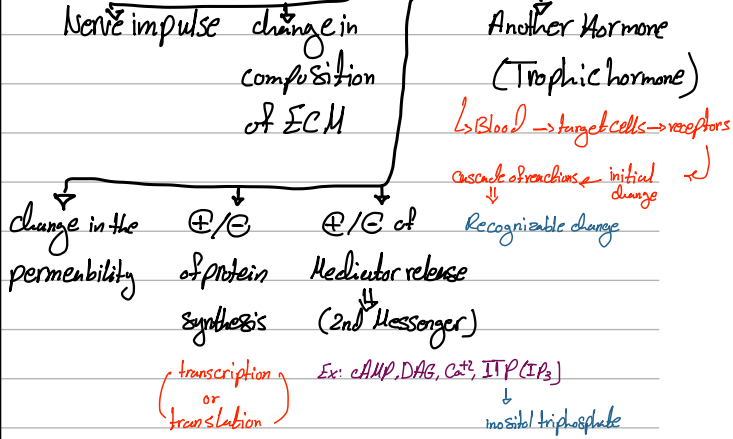 Nerve impulse
change in
composition
of ECM
Another Hormone
(Trophic hormone)
↳Blood → target cells → receptors
initial
change
← cascade of reactions
⇓
Recognizable change
change in the
permeability
⊕/⊖
of protein
synthesis
(transcription
or
translation)
⊕/⊖ of
Mediator release
⇓
(2nd Messenger)
Ex: cAMP, DAG, Ca+2, ITP (IP3)
↓
inositol triphosphate